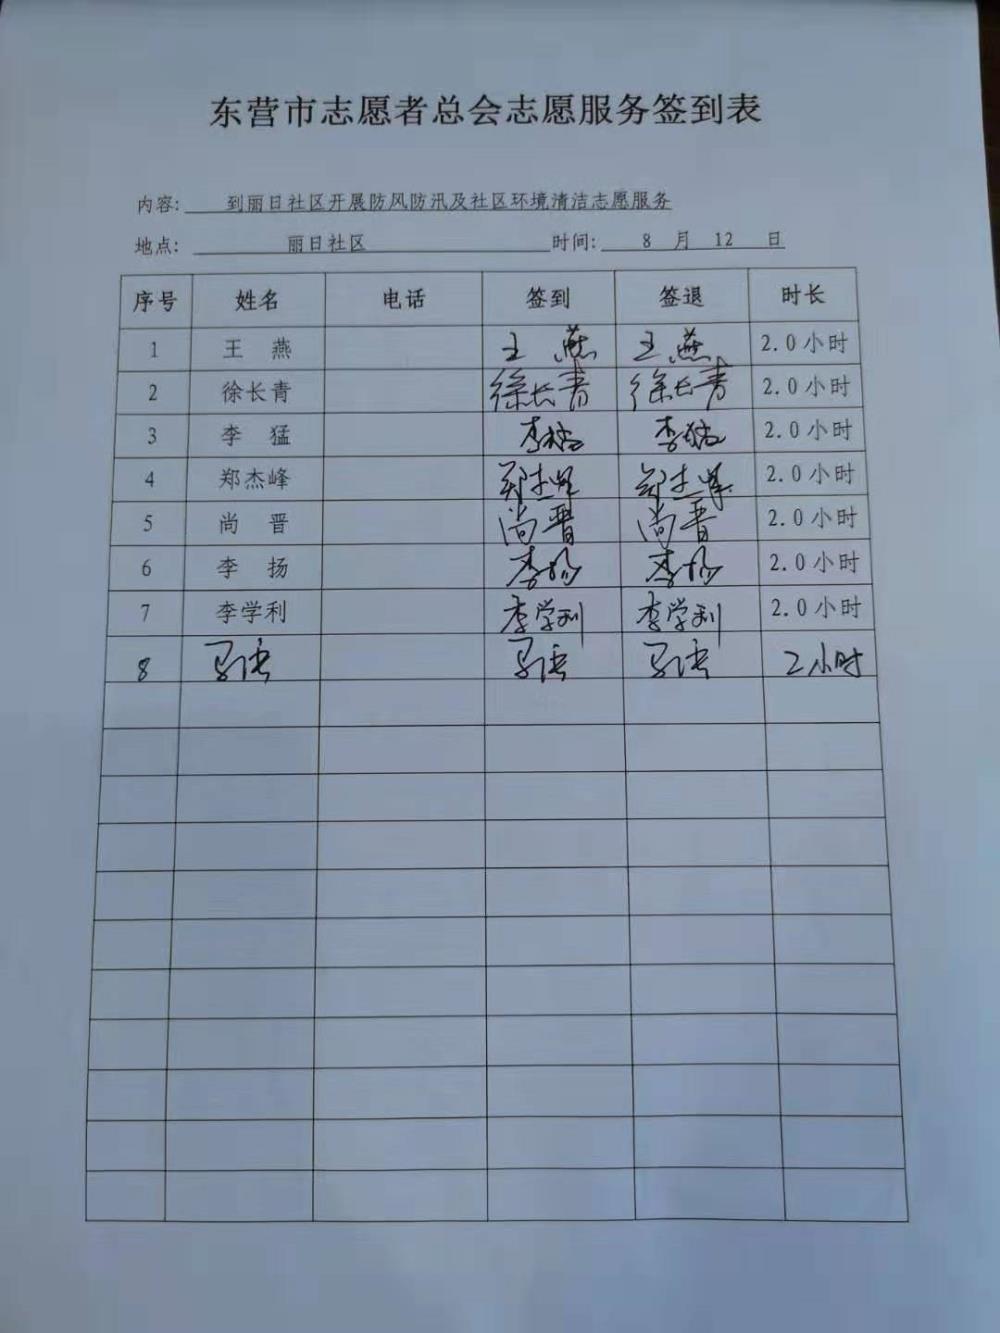 东营市志愿者总会志愿服务签到表
内容: 到丽日社区开展防风防汛及社区环境清洁志愿服务
地点: 丽日社区 时间: 8 月 12 日
序号 姓名 电话 签到 签退 时长
1 王 燕 王 燕 王 燕 2.0小时
2 徐长青 徐长青 徐长青 2.0小时
3 李 猛 李猛 李猛 2.0小时
4 郑杰峰 郑杰峰 郑杰峰 2.0小时
5 尚 晋 尚晋 尚晋 2.0小时
6 李 扬 李扬 李扬 2.0小时
7 李学利 李学利 李学利 2.0小时
8 2小时